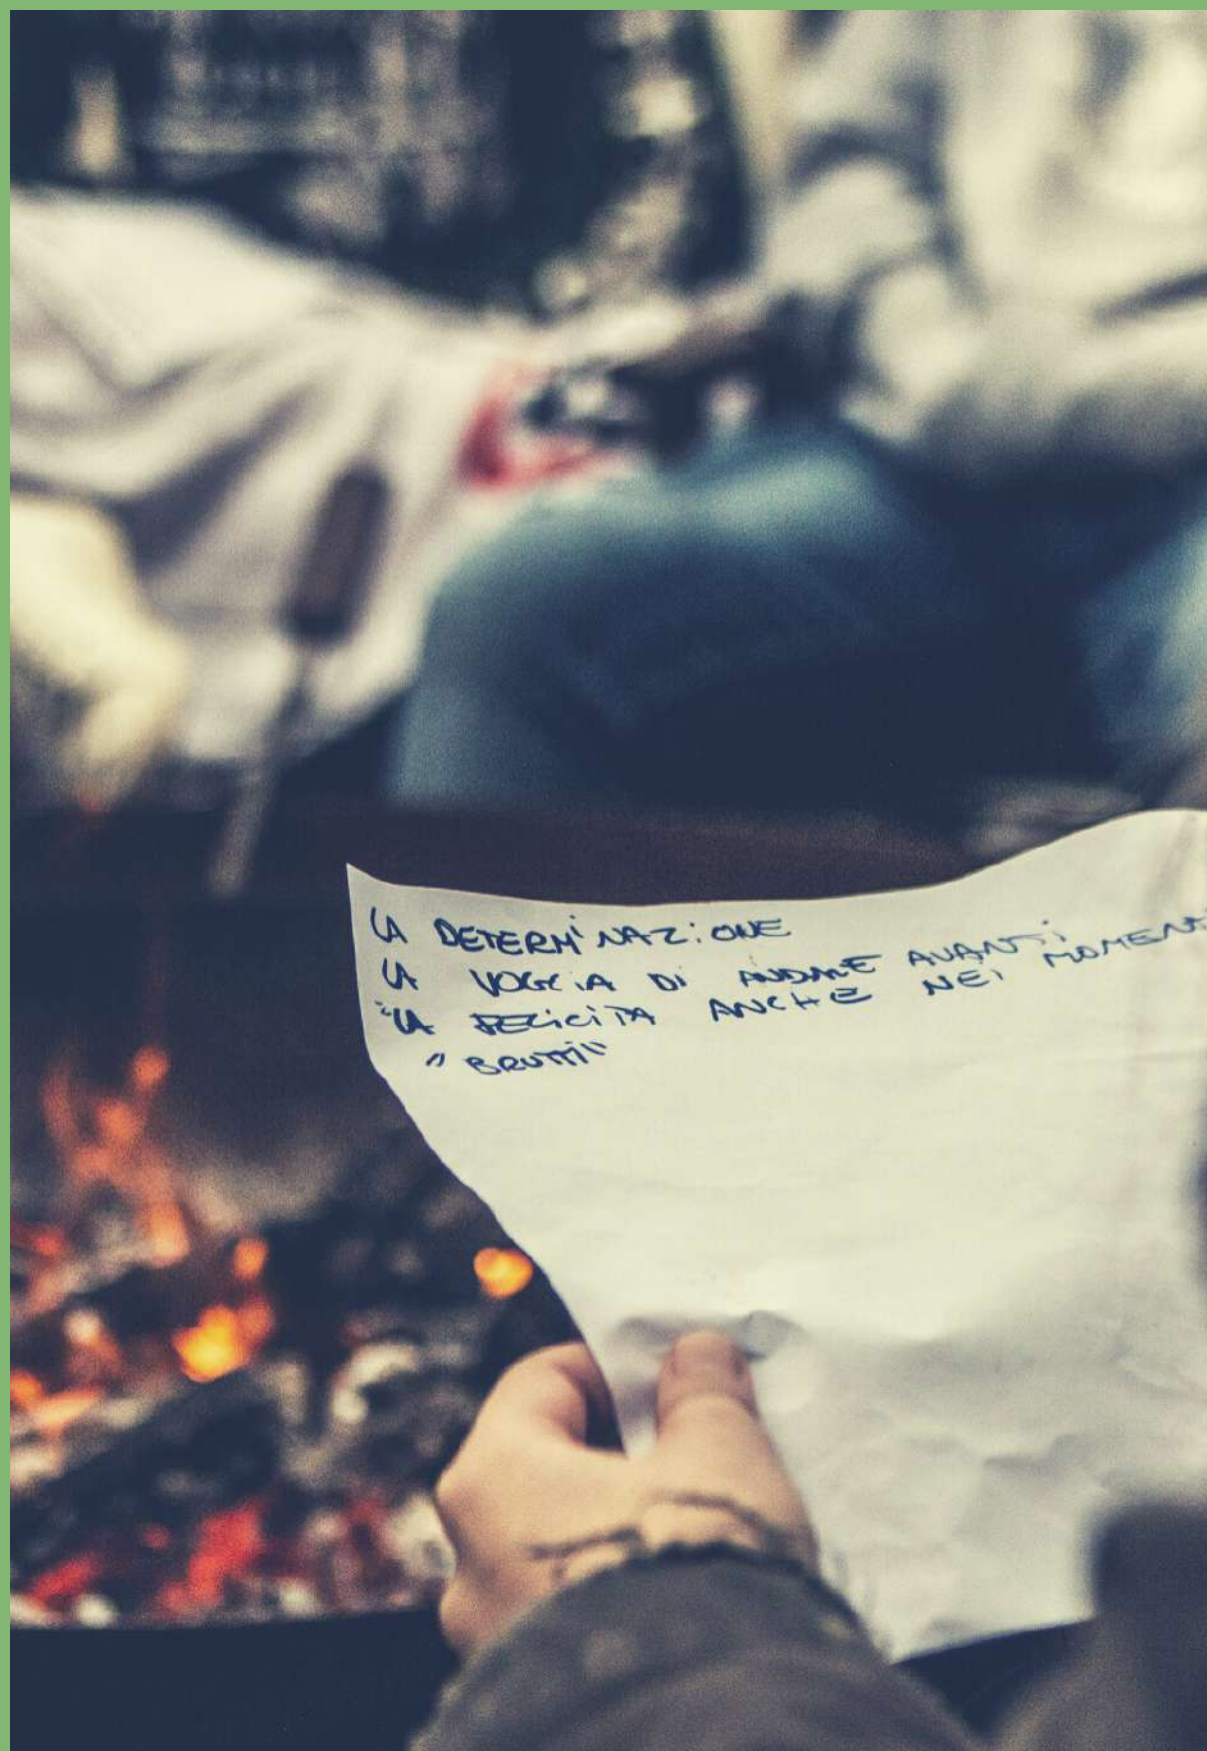 LA DETERMINAZIONE
LA VOGLIA DI ANDARE AVANTI
"LA FELICITÀ ANCHE NEI MOMENTI
"BRUTTI"